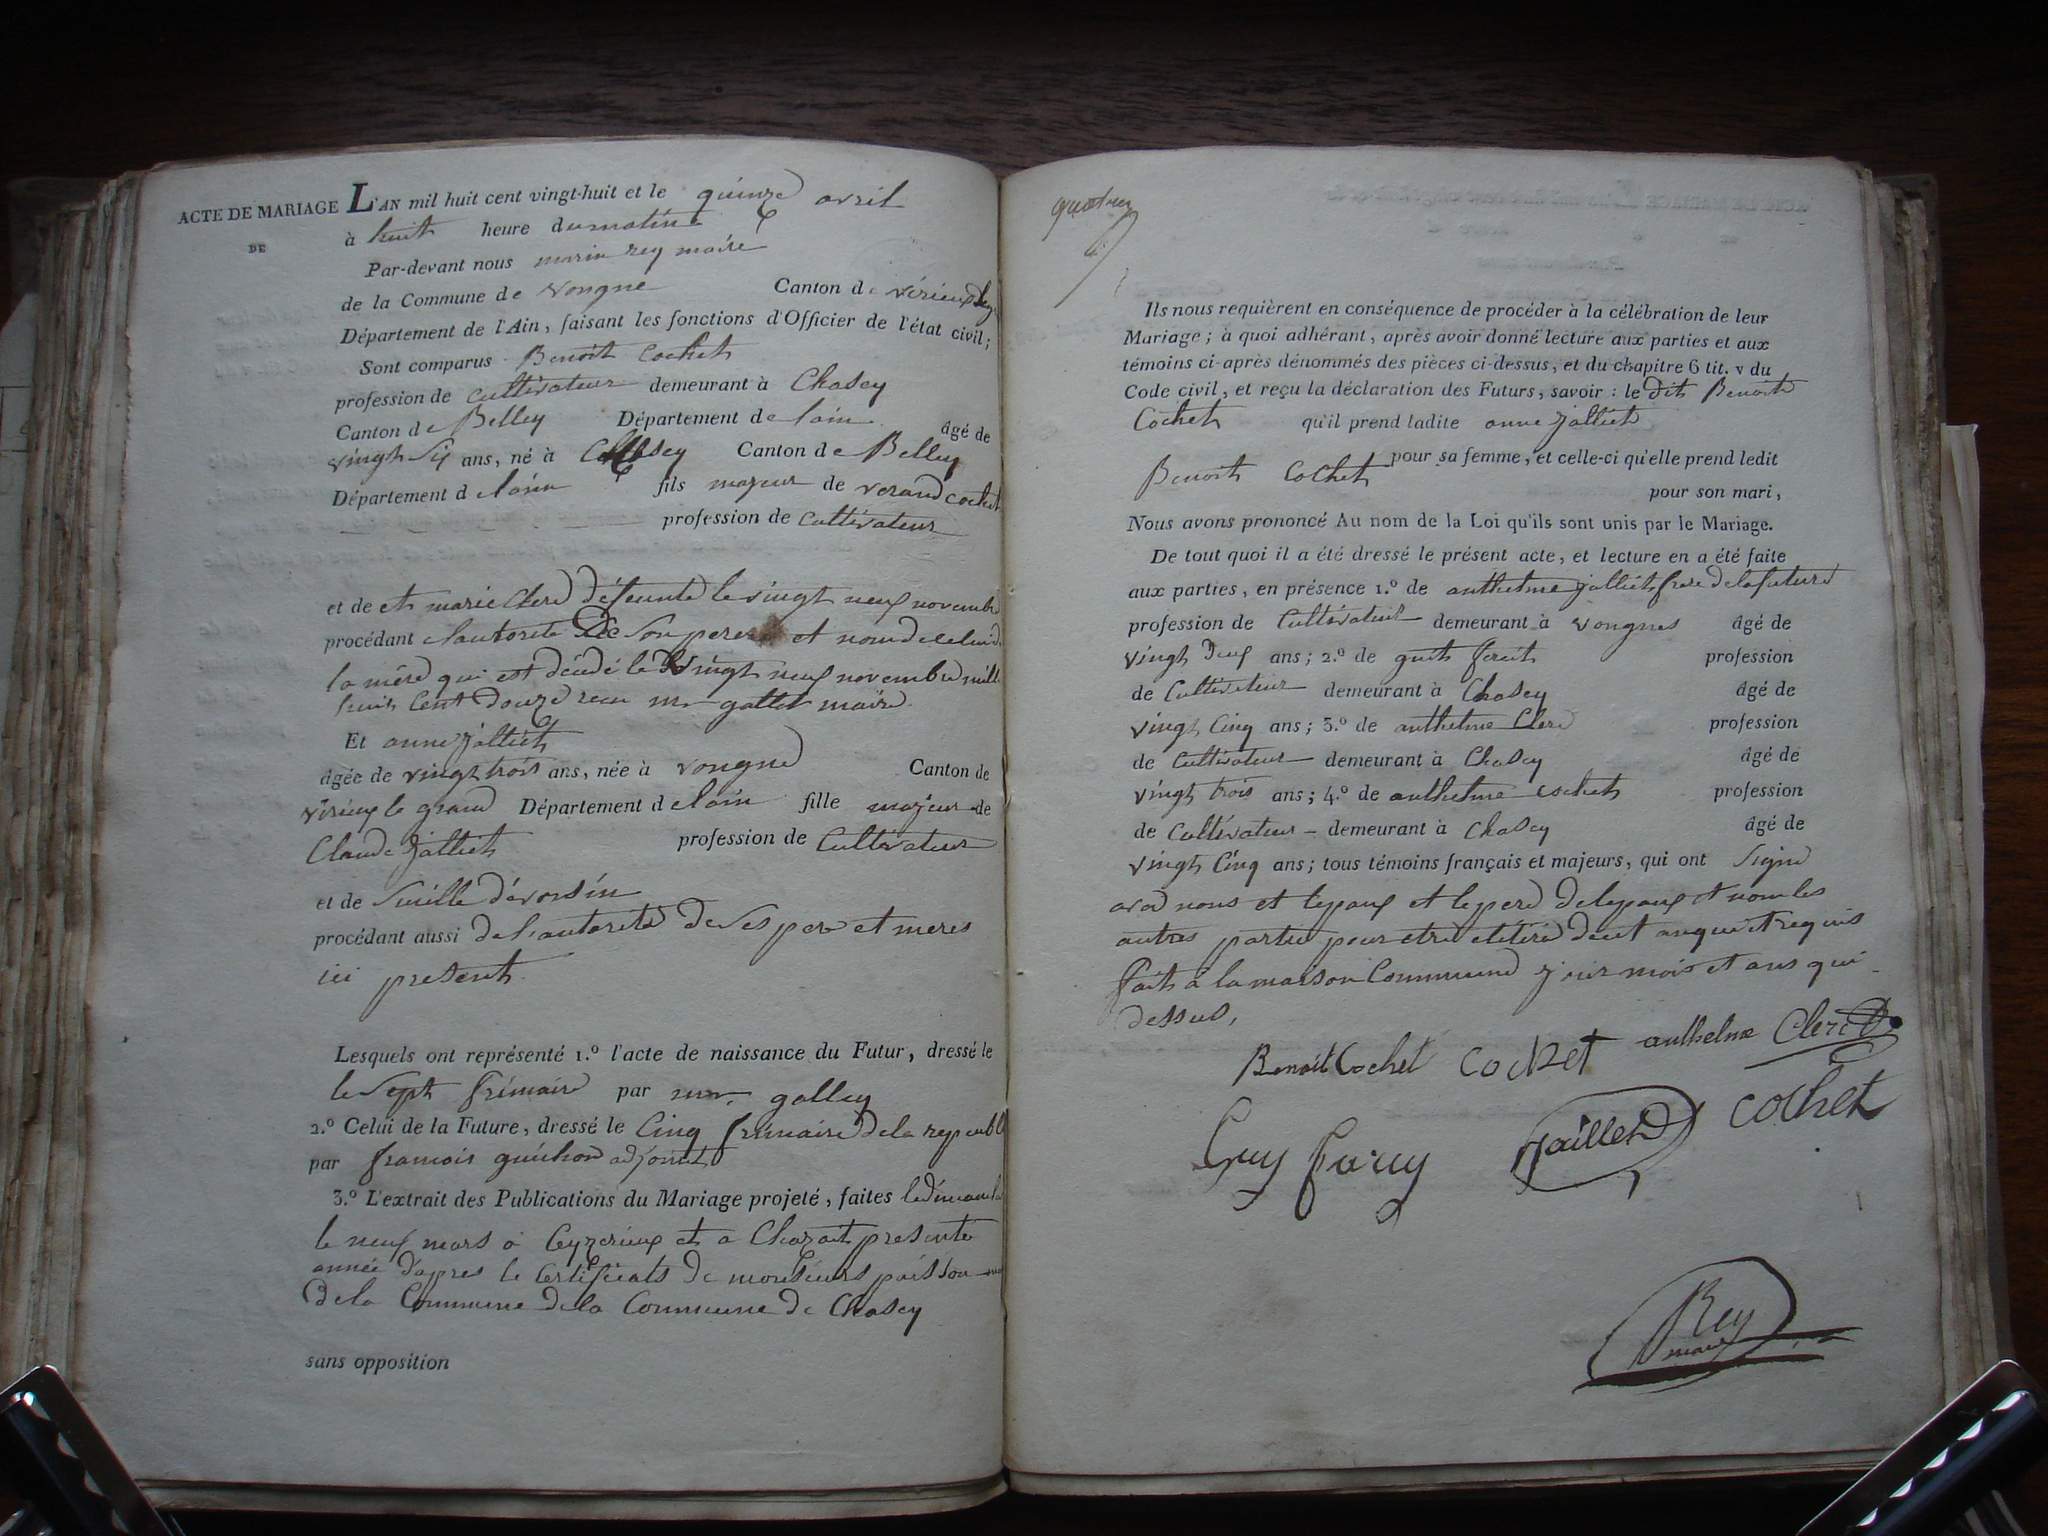 ACTE DE MARIAGE
DE
L'AN mil huit cent vingt-huit et le quinze avril
à huit heure dumatine
Par-devant nous marin rey maire
de la Commune de vongne Canton de virieux
Département de l'Ain, faisant les fonctions d'Officier de l'état civil;
Sont comparus Benoit Cochet
profession de cultivateur demeurant à Chasey
Canton de Belley Département de lain âgé de
vingt Six ans, né à Chasey Canton de Belley
Département de lain fils majeur de verand cochet
profession de Cultivateur
et de et marie Clerd défeunte le vingt neuf novembre
procédant lautorité De Son pere et nom de
la mére qui est décédé le vingt neuf novembre mille
huit Cent Douze recu mr gallet maire
Et anne jalliet
âgée de vingt trois ans, née à vongne Canton de
virieux le grand Département de lain fille majeur de
Claude Jalliet profession de Cultivateur
et de Sicille dévoisin
procédant aussi de l'autorité de Ses pere et meres
ici present
Lesquels ont représenté 1.º l'acte de naissance du Futur, dressé le
le Sept frimaire par mr. galley
2.º Celui de la Future, dressé le Cinq frimaire de la repeubl
par framois guichon adjoint
3.º L'extrait des Publications du Mariage projeté, faites
le neuf mars a Ceyzerieux et a Chazait présente
année dapres le Certificats de monsieurs poisson
de la Commune de la Commune de Chasey
sans opposition
quatre
4
Ils nous requièrent en conséquence de procéder à la célébration de leur
Mariage; à quoi adhérant, après avoir donné lecture aux parties et aux
témoins ci-après dénommés des pièces ci-dessus, et du chapitre 6 tit. v du
Code civil, et reçu la déclaration des Futurs, savoir: le dit Benoit
Cochet qu'il prend ladite anne jalliet
pour sa femme, et celle-ci qu'elle prend ledit
Benoit Cochet pour son mari,
Nous avons prononcé Au nom de la Loi qu'ils sont unis par le Mariage.
De tout quoi il a été dressé le présent acte, et lecture en a été faite
aux parties, en présence 1.º de anthelme jalliet frere de la future
profession de Cultivateur demeurant à vongnes âgé de
vingt Deux ans; 2.º de guit profession
de Cultivateur demeurant à Chasey âgé de
vingt Cinq ans; 3.º de anthelme Clerd profession
de Cultivateur demeurant à Chasey âgé de
vingt trois ans; 4.º de anthelme cochet profession
de Cultivateur demeurant à Chasey âgé de
vingt Cinq ans; tous témoins français et majeurs, qui ont Signé
avec nous et lepoux et lepere delepoux et non les
autres partie pour etre de
fait à la maison Commune jour mois et ans qui
dessus,
Benoit Cochet Cochet anthelme Clerc
Guy furcy Jaillet Cochet
Rey
maire